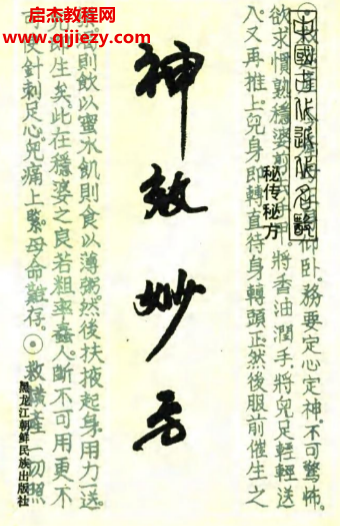 启杰教程网
www.qijiezy.com
中國古代近代名醫
秘传秘方
神效妙方
黑龙江朝鲜民族出版社
卧。務要定心定神。不可驚怖。
欲求慣熟穩婆剪去手甲。將香油潤手。將兒足輕輕送
入又再推上兒身即轉直待身轉頭正然後服前催生之
則飲以蜜水飢則食以薄粥。然後扶掖起身。用力一送。
兒即生矣此在穩婆之良若粗率蠢人。斷不可用更不
可使針刺足心。兒痛上緊。母命難存。⊙救橫產一切照